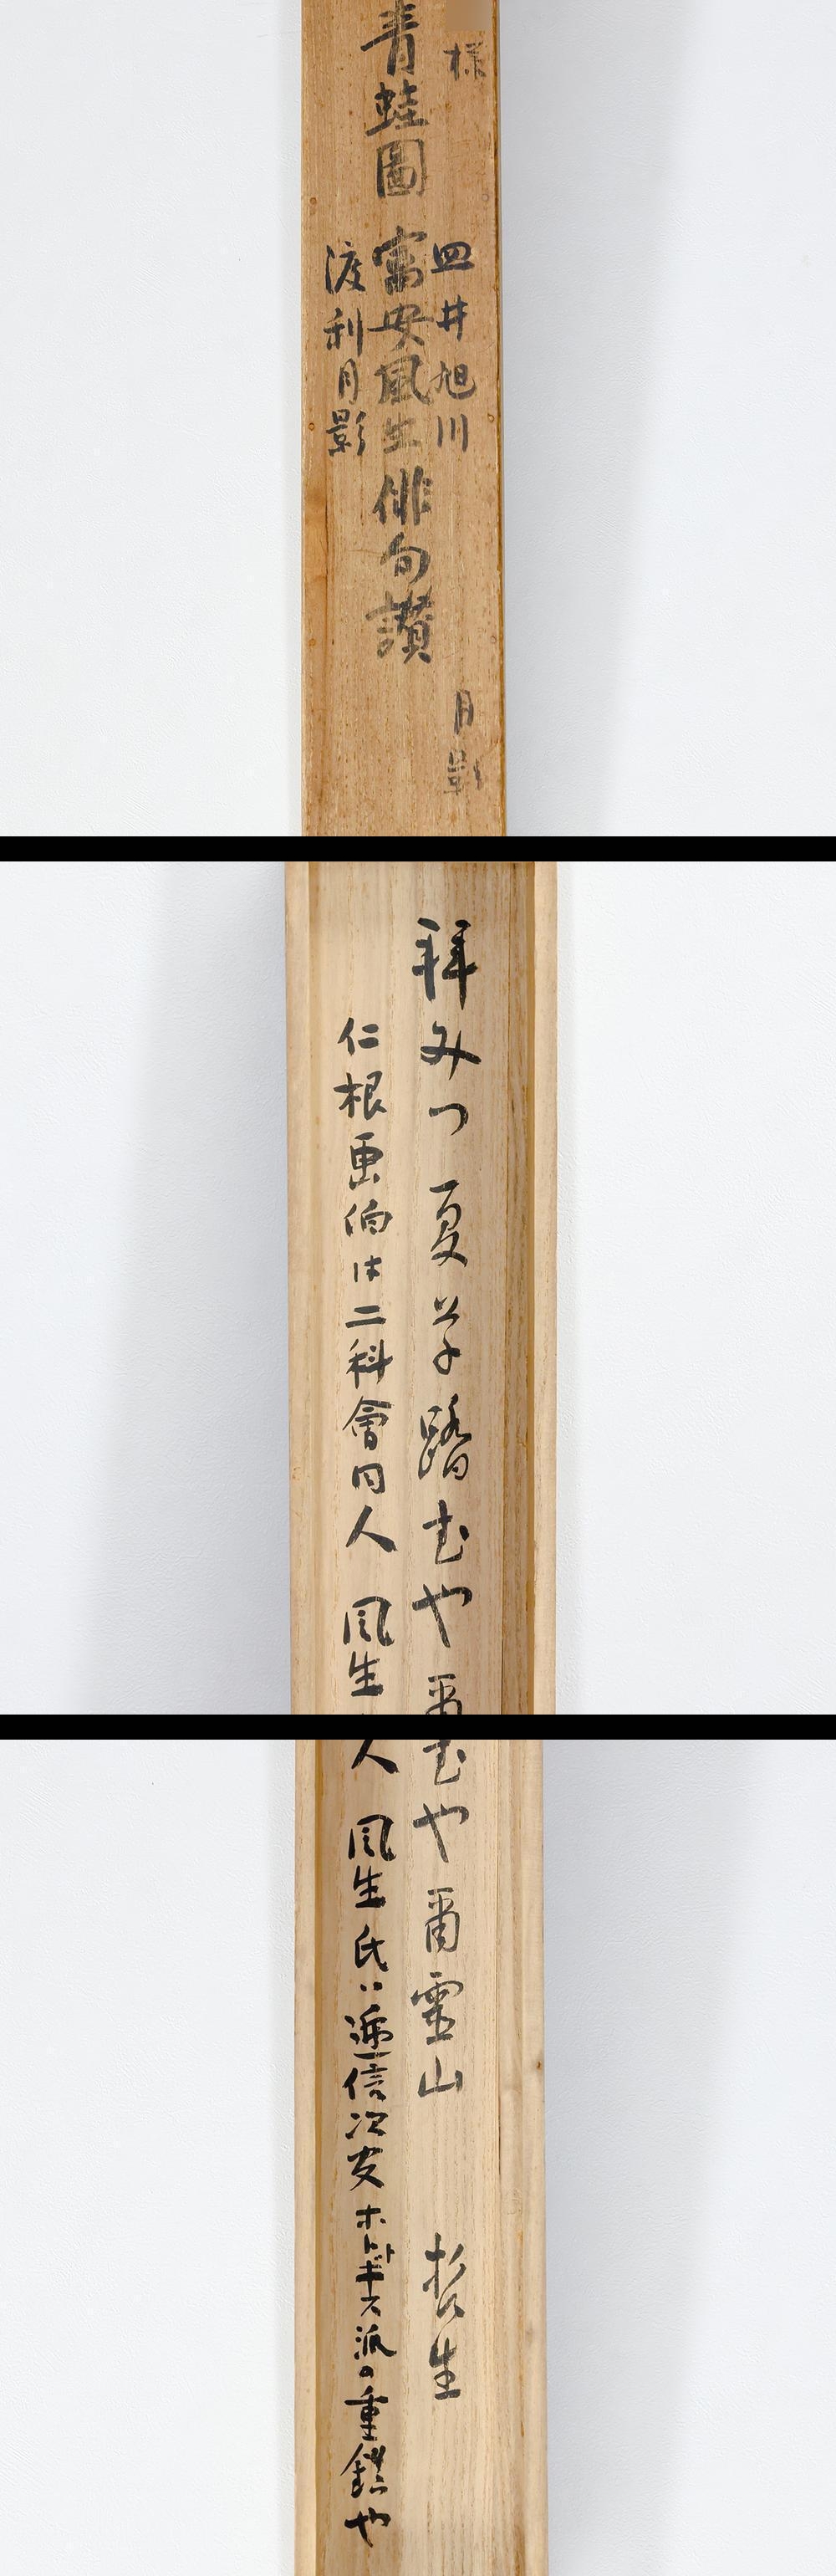 様
皿井旭川
月影
青蛙圖 富安風生俳句讃
渡利月影
拝みつ夏草踏むや爾
仁根画伯は二科會同人 風生
むや爾靈山
人 風生氏ハ逓信次官ホトトギス派の重鎮や